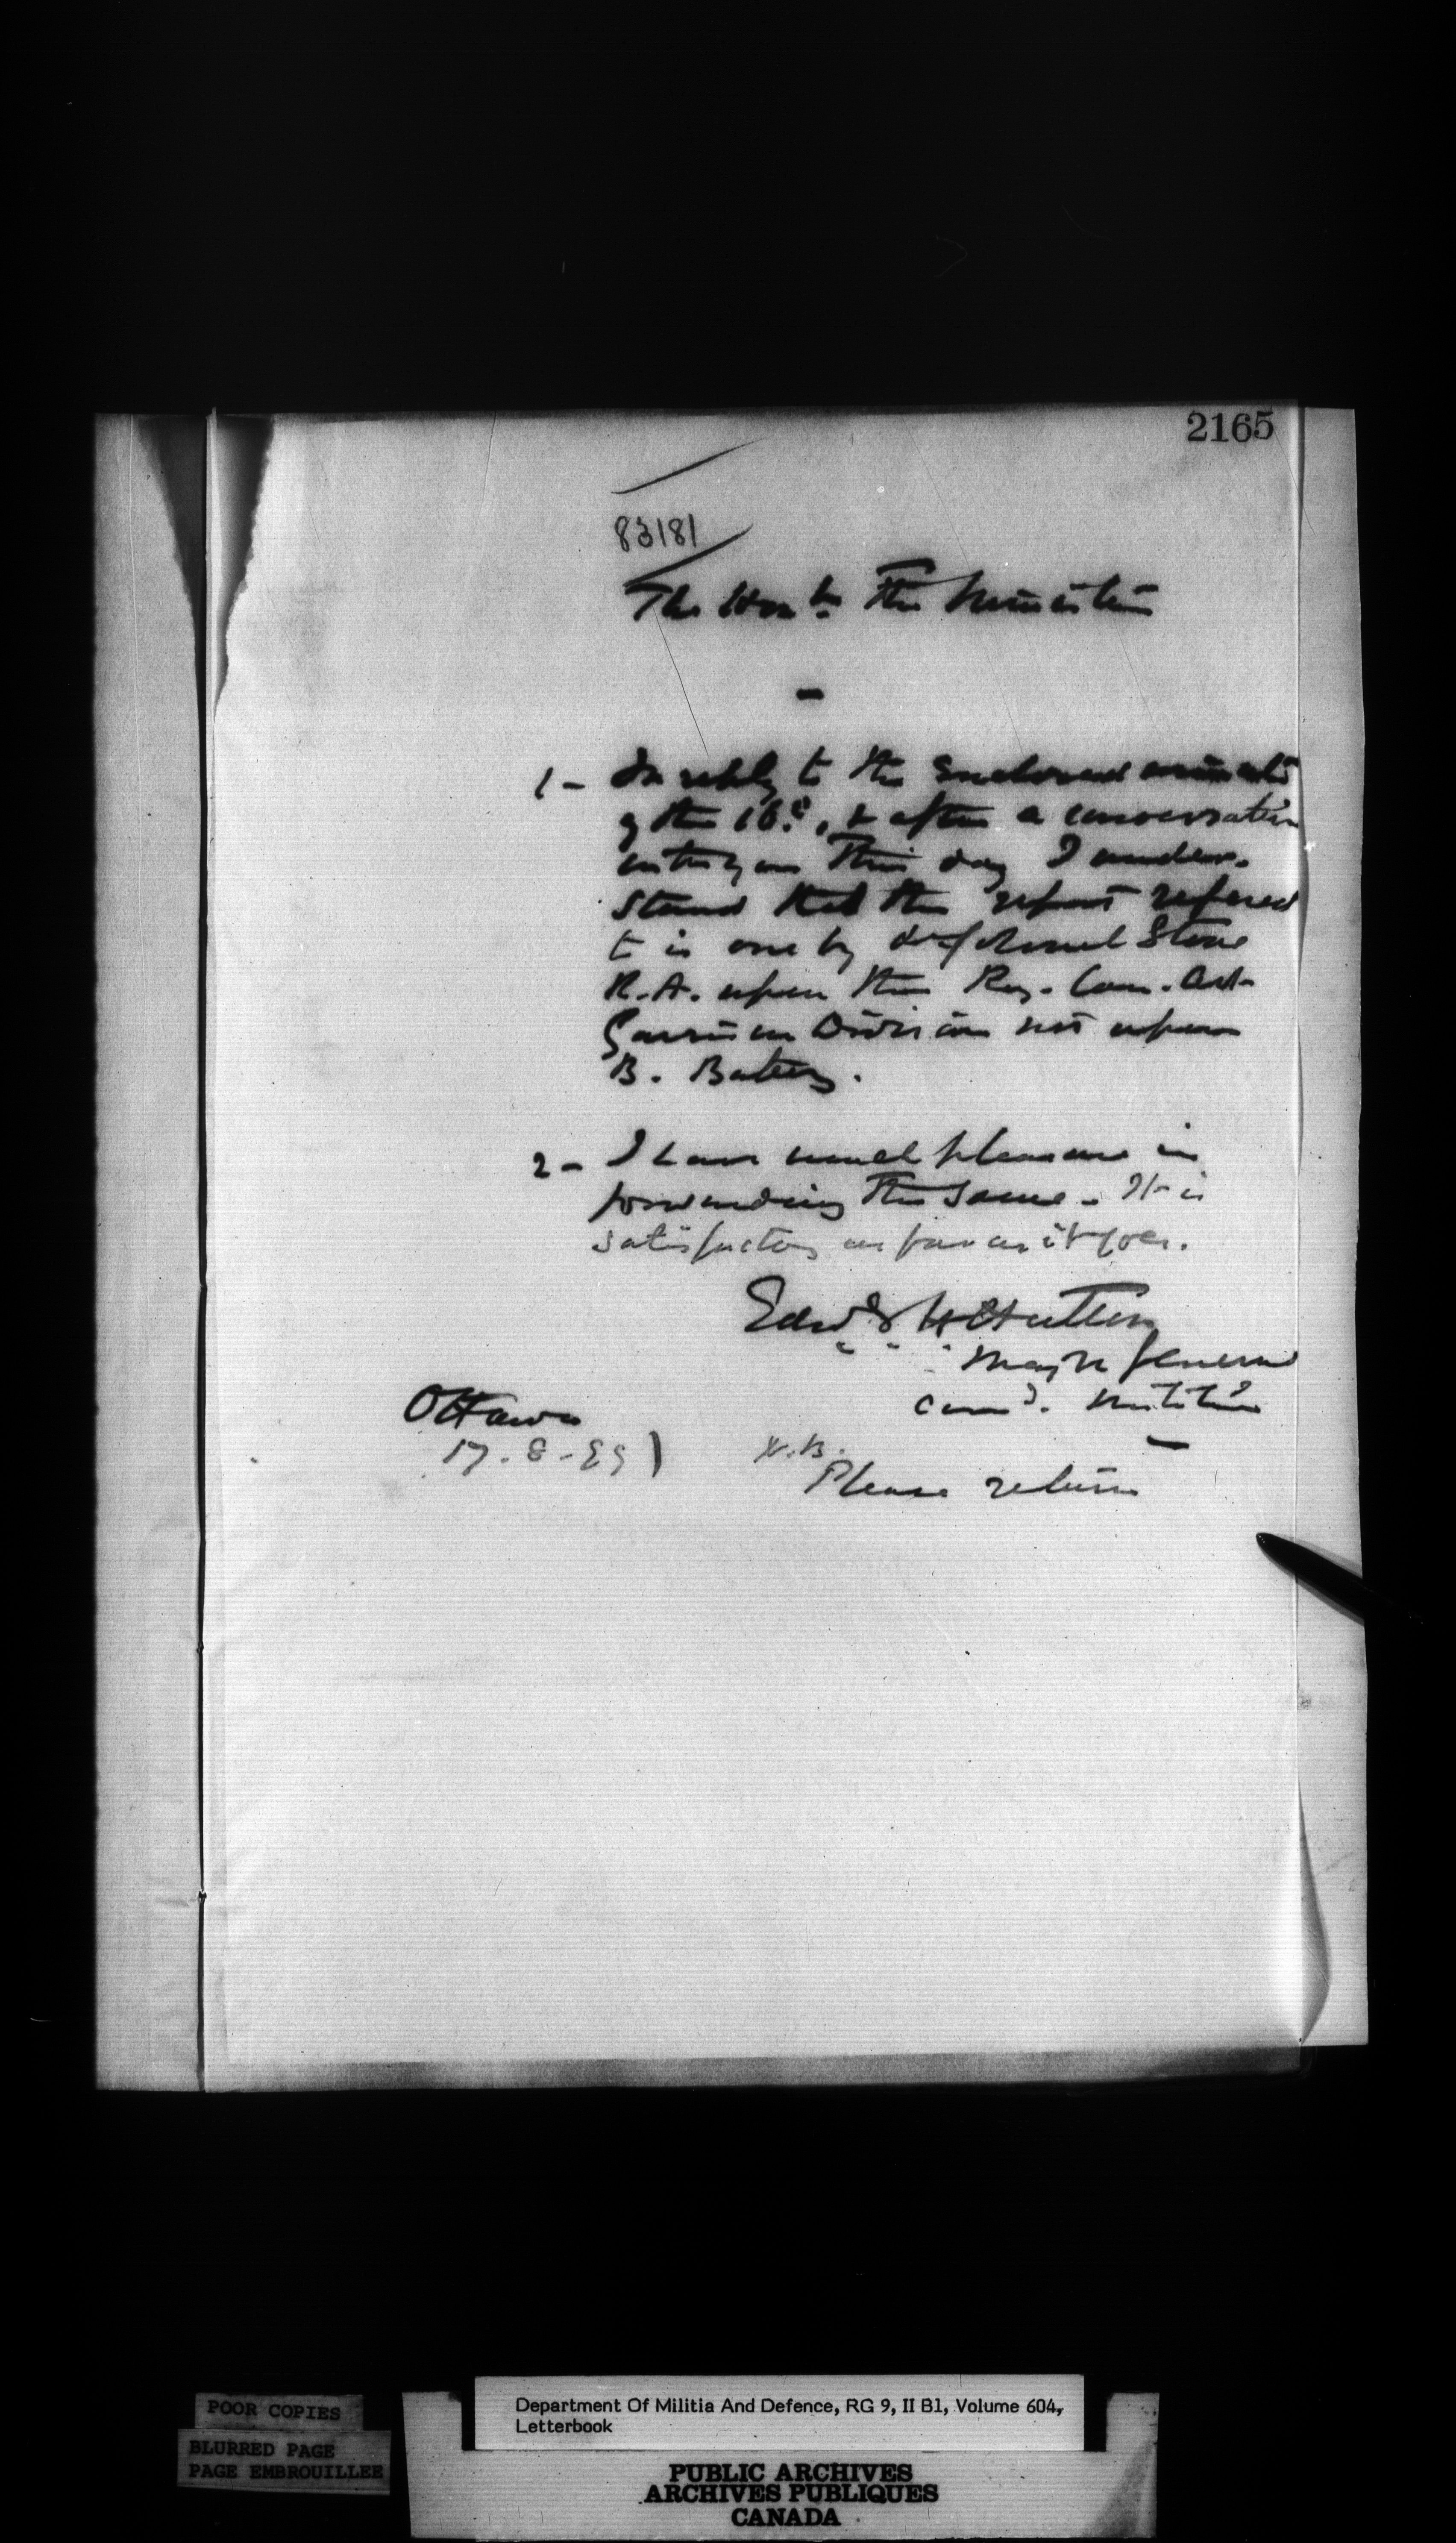 2165
83181
The Honble The Minister
1- In reply to the enclosed minute
of the 16th, & after a conversation
with you this day I under-
stand that the report refered
to is one by Lt Colonel Stone
R.A. upon the Roy. Can. Art.
Garrison Division not upon
B. Battery.
2- I have much pleasure in
forwarding the same. It is
satisfactory as far as it goes.
Edwd H Hutton
Major General
Comd. Militia
Ottawa
17.8-99)
N.B.
Please return
POOR COPIES
BLURRED PAGE
PAGE EMBROUILLEE
Department Of Militia And Defence, RG 9, II B1, Volume 604,
Letterbook
PUBLIC ARCHIVES
ARCHIVES PUBLIQUES
CANADA